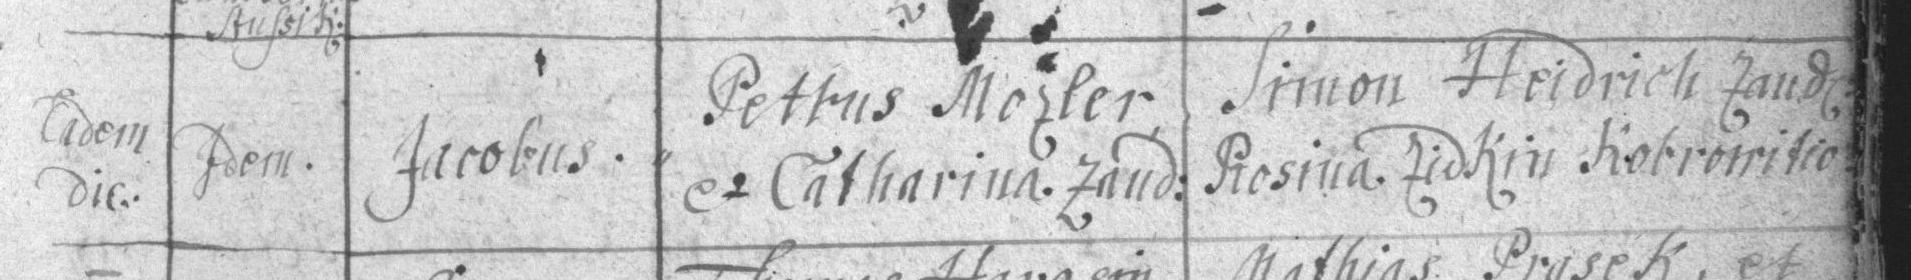 Stussik:
Eadem
die.
Idem.
Jacobus.
Petrus Mozler
et Catharina. Zaud:
Simon Heidrich Zaud:
Rosina. Zidkin Kobrowitio
Mathias Prasek, et